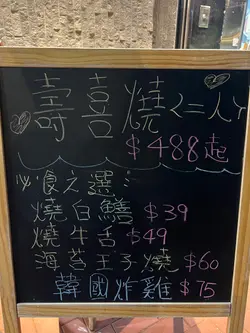 壽喜燒<二人>
$488起
必食之選：
燒白鱔 $39
燒牛舌 $49
海苔王子燒 $60
韓國炸雞 $75